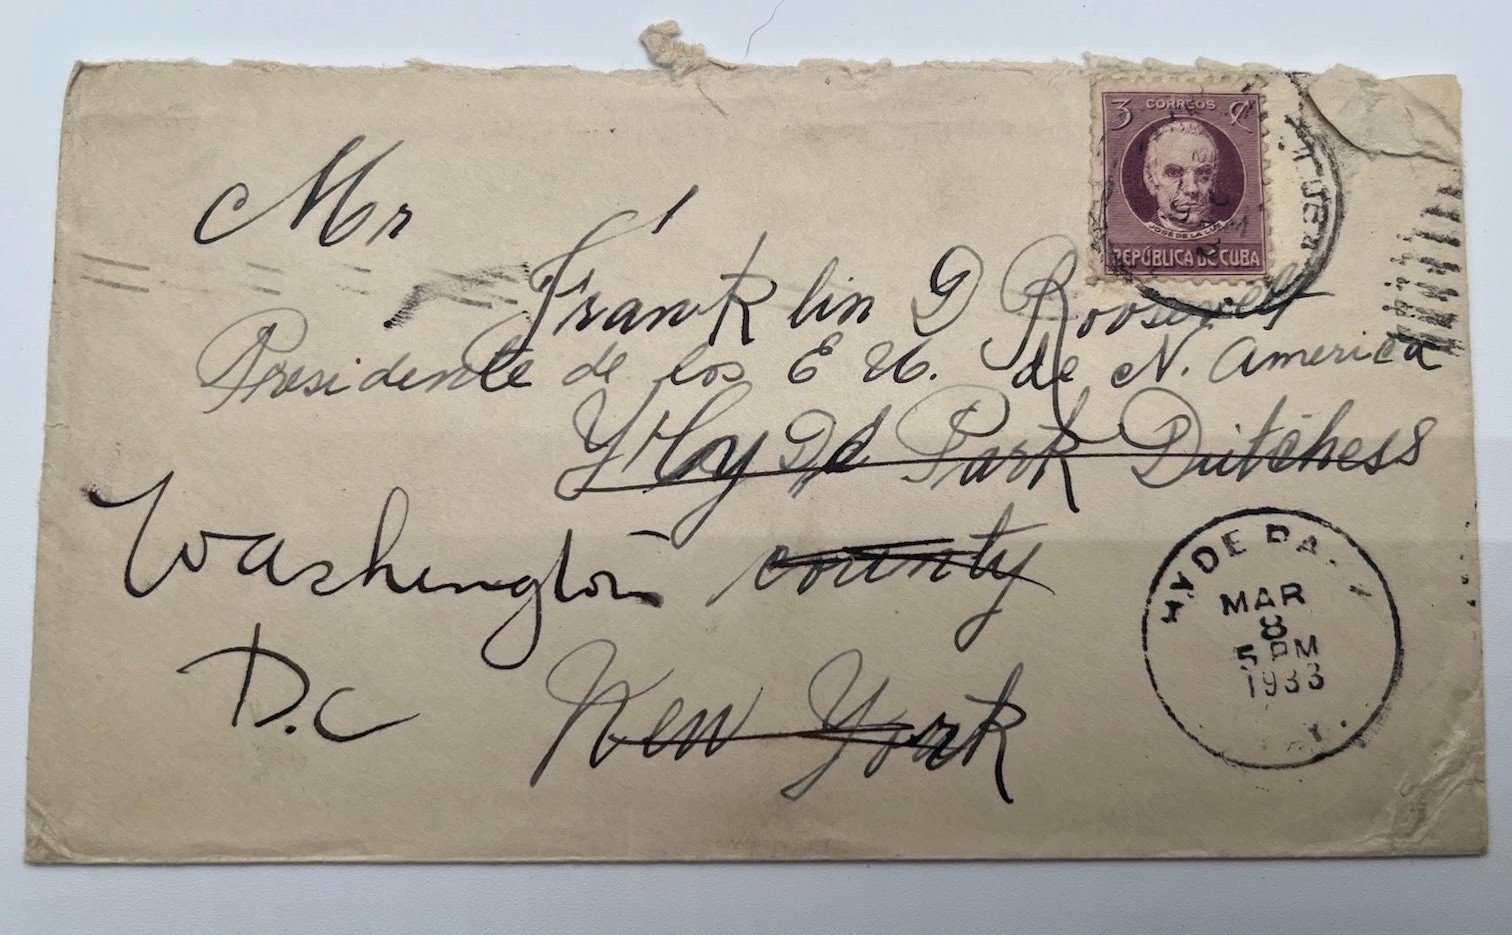 3 CORREOS ¢
JOSÉ DE LA LUZ
REPÚBLICA DE CUBA
CUBA
Mr
Franklin D Roosevelt
Presidente de los E U. de N. America
Park Dutchess
Washington county
D.C New York
HYDE PA
MAR
8
5 PM
1933
Y.